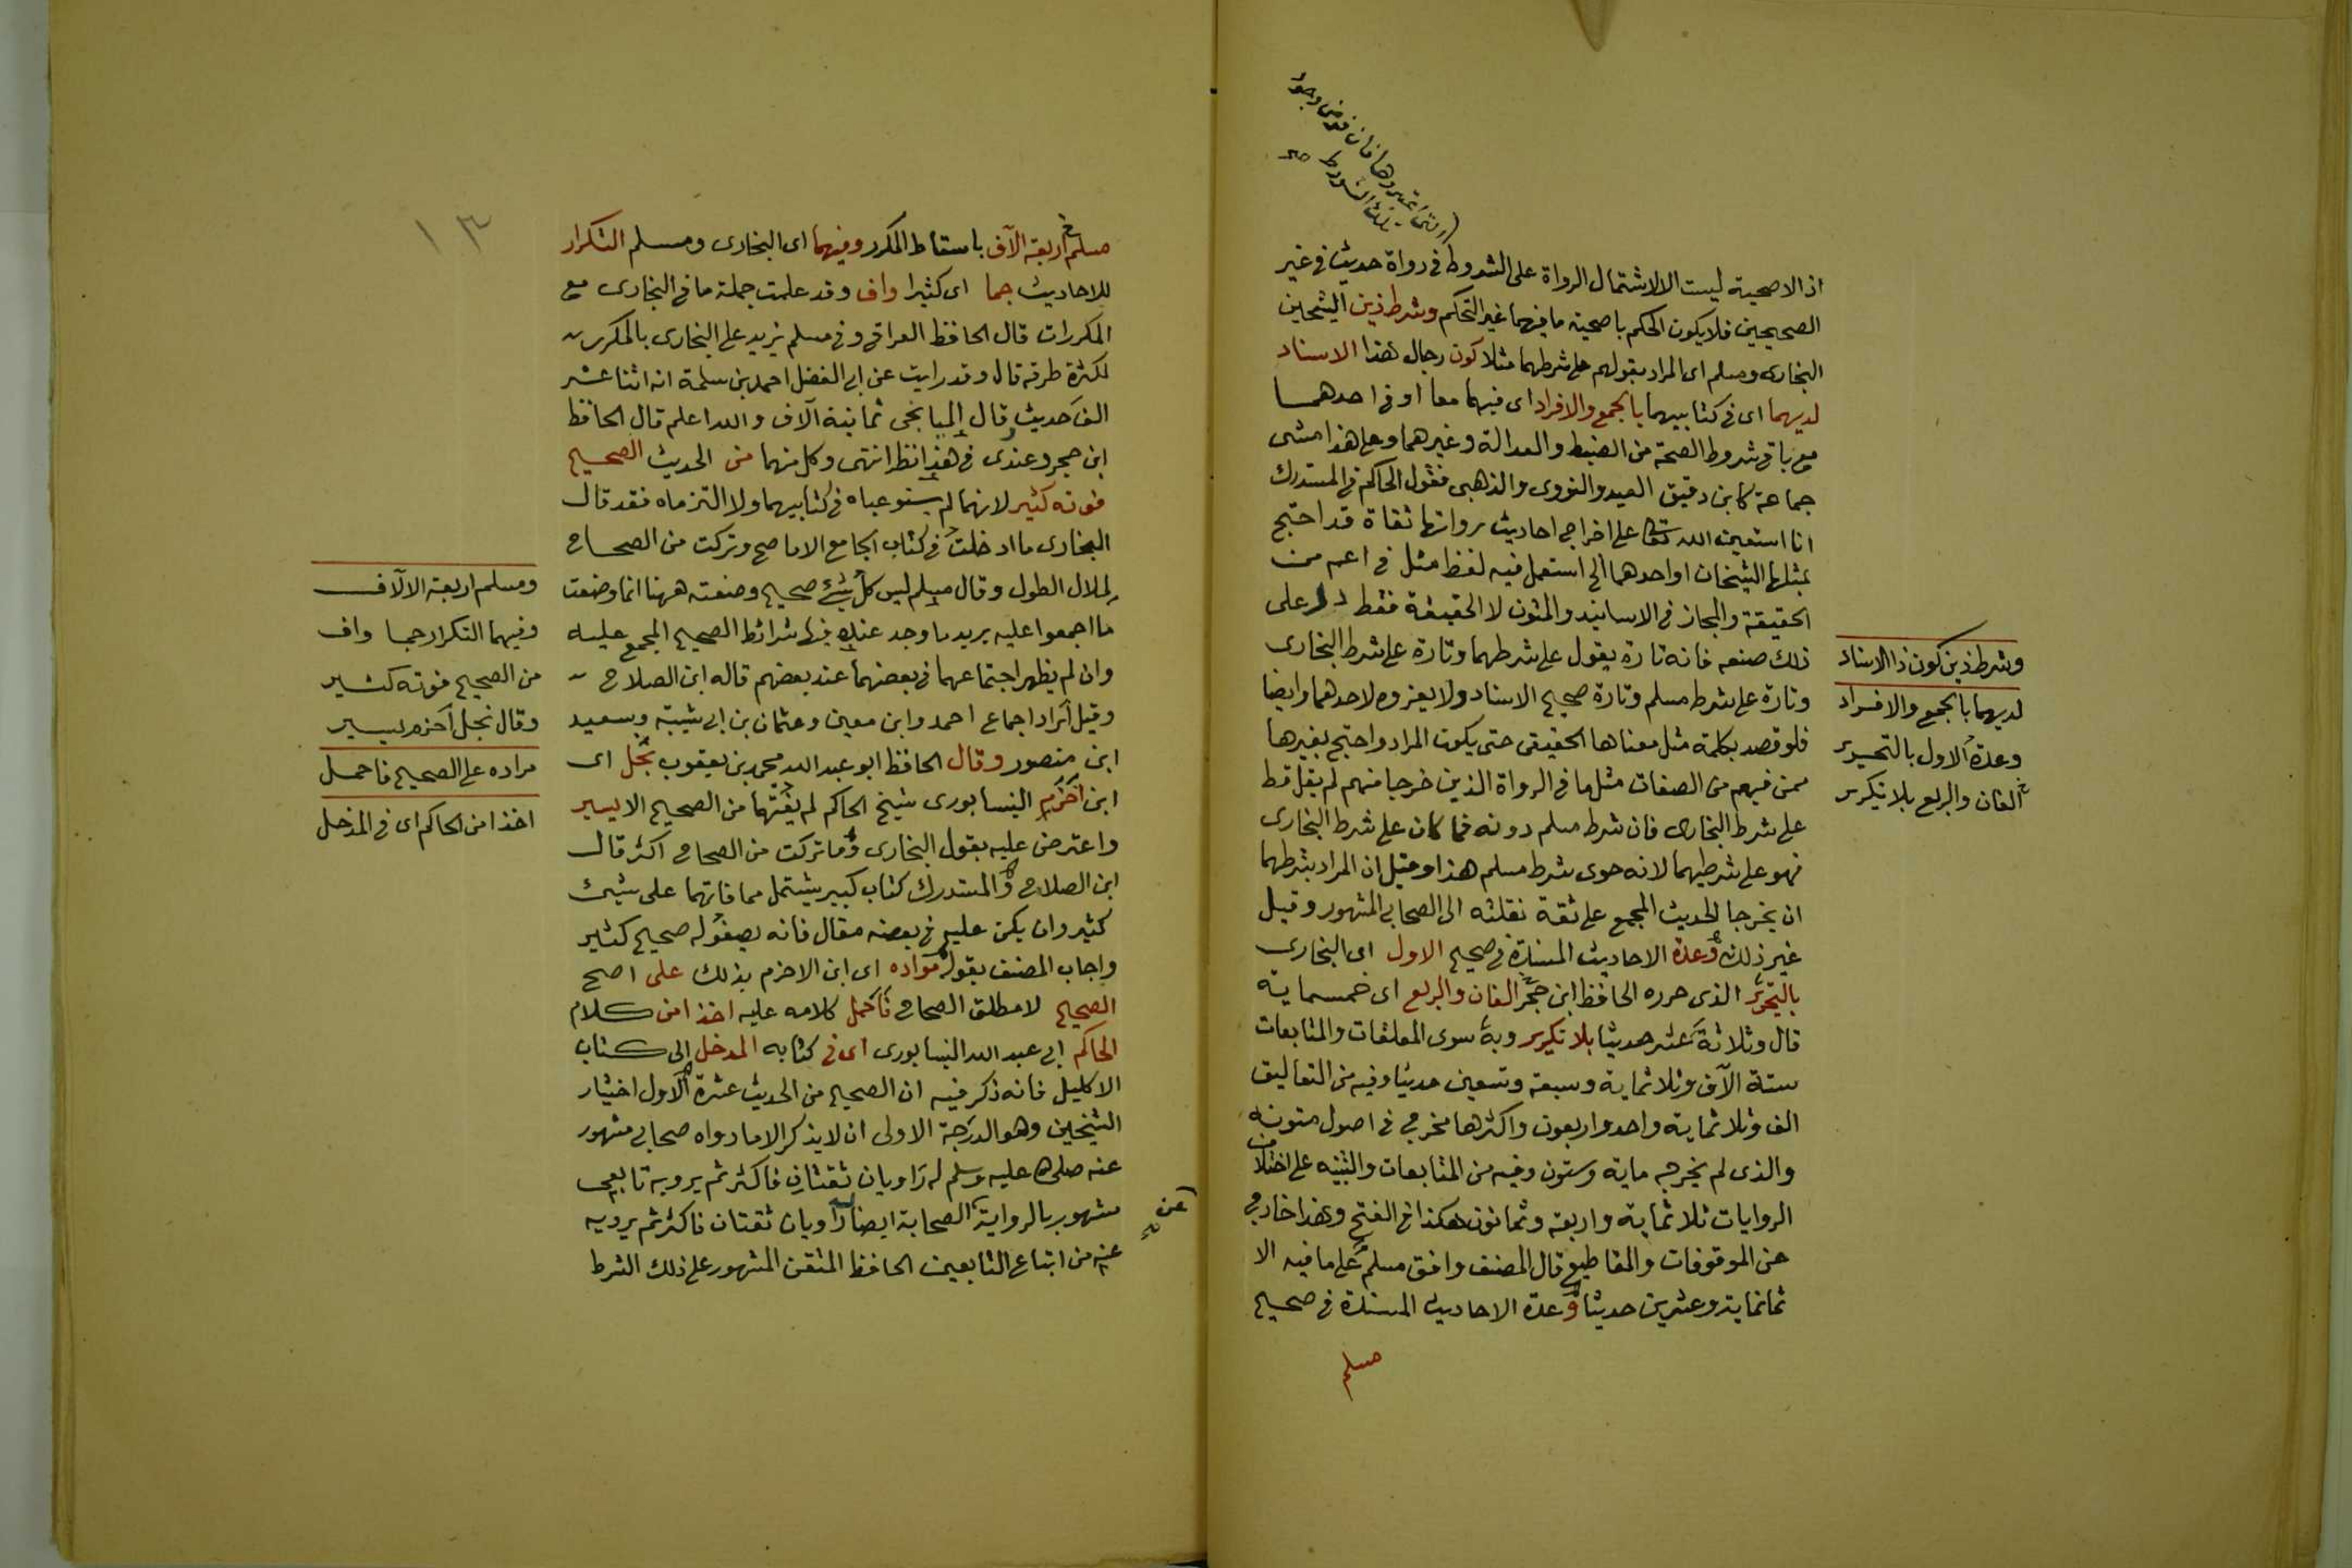 (التى اعتبروها فان فرض وجود
تلك الشروط صح
اذ الاصحية ليست الا لاشتمال الرواة على الشروط فى رواة حديث فى غير
الصحيحين فلا يكون الحكم باصحية ما فيهما غير التحكم وشرط ذين الشيخين
البخارى ومسلم اى المراد بقولهم على شرطهما مثلا كون رجال هذا الاسناد
لديهما اى فى كتابيهما بالجمع والافراد اى فيهما معا او فى احدهما
مع باقى شروط الصحة من الضبط والعدالة وغيرهما وعلى هذا مشى
جماعة كابن دقيق العيد والنووى والذهبى فقول الحاكم فى المستدرك
انا استعين الله تعالى على اخراج احاديث رواتها ثقاة قد احتج
بمثلها الشيخان او احدهما الخ استعمل فيه لفظ مثل فى اعم من
الحقيقة والمجاز فى الاسانيد والمتون لا الحقيقة فقط دل على
ذلك صنعه فانه تارة يقول على شرطهما وتارة على شرط البخارى
وتارة على شرط مسلم وتارة صحيح الاسناد ولا يعزوه لاحدهما وايضا
فلو قصد بكلمة مثل معناها الحقيقى حتى يكون المراد واحتج بغيرها
ممن فيهم من الصفات مثل ما فى الرواة الذين خرجا منهم لم يقل قط
على شرط البخارى فان شرط مسلم دونه فما كان على شرط البخارى
فهو على شرطيهما لانه حوى شرط مسلم هذا وقيل ان المراد بشرطهما
ان يخرجا الحديث المجمع على ثقة نقلته الى الصحابى المشهور وقيل
غير ذلك وعدة الاحاديث المسندة فى صحيح الاول اى البخارى
بالتحرير الذى حرره الحافظ ابن حجر الفان والربع اى خمسماية
قال وثلاثة عشر حديثا بلا تكرير وبه سوى المعلقات والمتابعات
ستة الآف وثلاثماية وسبعة وتسعين حديثا وفيه من التعاليق
الف وثلاثماية واحد واربعون واكثرها مخرج فى اصول متونه
والذى لم يخرجه ماية وستون وفيه من المتابعات والتنبيه على اختلاف
الروايات ثلاثماية واربعة وثمانون هكذا فى الفتح وهذا خارج
عن الموقوفات والمقاطيع قال المصنف وافق مسلم على ما فيه الا
ثمانماية وعشرين حديثا وعدة الاحاديث المسندة فى صحيح
مسلم
وشرط ذين كون ذا الاسناد
لديهما بالجمع والافراد
وعدة الاول بالتحرير
الفان والربع بلا تكرير
١٣
مسلم اربعة الآف باسقاط المكرر وفيهما اى البخارى ومسلم التكرار
للاحاديث جما اى كثيرا واف وقد علمت جملة ما فى البخارى مع
المكررات قال الحافظ العراقى وفى مسلم يزيد على البخارى بالمكرر
لكثرة طرقه قال وقد رايت عن ابى الفضل احمد بن سلمة انه اثنا عشر
الف حديث وقال الميانجى ثمانية آلاف والله اعلم قال الحافظ
ابن حجر وعندى فى هذا نظر انتهى وكل منهما من الحديث الصحيح
فوته كثير لانهما لم يستوعباه فى كتابيهما ولا التزماه فقد قال
البخارى ما ادخلت فى كتاب الجامع الا ما صح وتركت من الصحاح
لملال الطول وقال مسلم ليس كل شيئ صحيح وضعته ههنا انما وضعت
ما اجمعوا عليه يريد ما وجد عنده فيها شرائط الصحيح المجمع عليه
وان لم يظهر اجتماعهما فى بعضهما عند بعضهم قاله ابن الصلاح
وقيل اراد اجماع احمد وابن معين وعثمان بن ابى شيبة وسعيد
ابن منصور وقال الحافظ ابو عبد الله محمد بن يعقوب نجل اى
ابن اخرم النيسابورى شيخ الحاكم لم يفتهما من الصحيح الا يسير
واعترض عليه بقول البخارى وما تركت من الصحاح اكثر قال
ابن الصلاح والمستدرك كتاب كبير يشتمل مما فاتهما على شيئ
كثير وان يكن عليه فى بعضه مقال فانه يصفو له صحيح كثير
واجاب المصنف بقوله مراده اى ابن الاخرم بذلك على اصح
الصحيح لا مطلق الصحاح فاحمل كلامه عليه اخذا من كلام
الحاكم ابى عبد الله النيسابورى اى فى كتابه المدخل الى كتاب
الاكليل فانه ذكر فيه ان الصحيح من الحديث عشرة الاول اختيار
الشيخين وهو الدرجة الاولى ان لا يذكر الا ما رواه صحابى مشهور
عنه صلى الله عليه وسلم له راويان ثقتان فاكثر ثم يرويه تابعى
مشهور بالرواية الصحابة ايضا له راويان ثقتان فاكثر ثم يرويه
عنه من اتباع التابعين الحافظ المتقن المشهور على ذلك الشرط
عن
ومسلم اربعة الالآف
وفيهما التكرار جما واف
من الصحيح فوته كثير
وقال نجل اخرم يسير
مراده على الصحيح فاحمل
اخذا من الحاكم اى فى المدخل